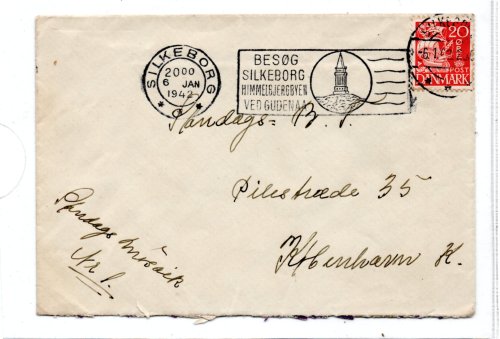 SILKEBORG
2000
6 JAN
1942
BESØG
SILKEBORG
HIMMELBJERGBYEN
VED GUDENAA
20
POST
DANMARK
Mandags- B. T
Pilestræde 35
København K.
Mandags
Nr 1.